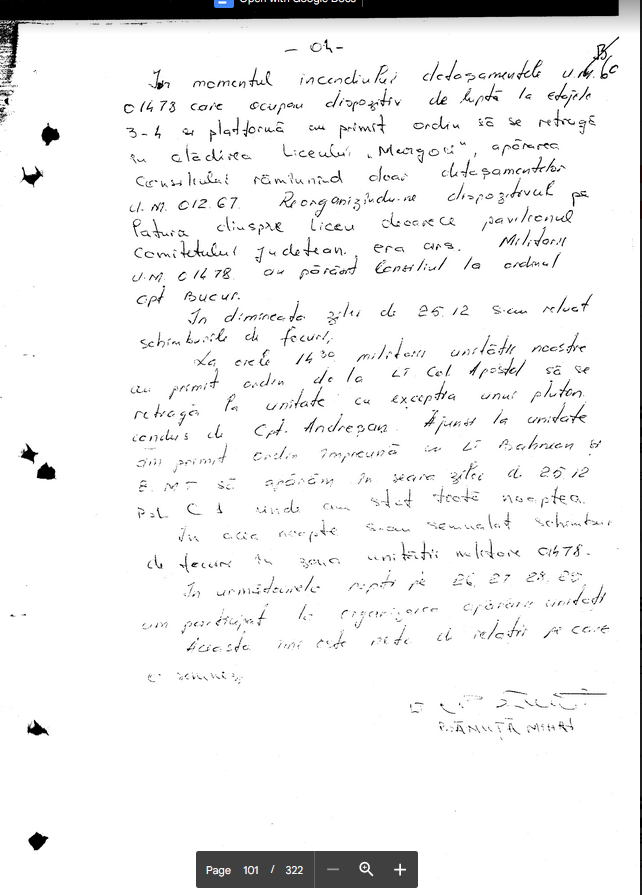 Open with Google Docs
- 04 -
În momentul incendiului detașamentele U.M.
01478 care ocupau dispozitiv de luptă la etajele
3-4 și platformă au primit ordin să se retragă
în clădirea Liceului „ ", apărarea
Consiliului rămînînd doar detașamentelor
U.M. 01267. Reorganizîndu-ne dispozitivul pe
latura dinspre Liceu deoarece pavilionul
Comitetului Județean, era ars. Militarii
U.M. 01478. au părăsit Consiliul la ordinul
cpt Bucur.
În dimineața zilei de 25.12 s-au reluat
schimburile de focuri,
La orele 14 30 militarii unității noastre
au primit ordin de la Lt Col Apostol să se
retragă la unitate cu excepția unui pluton
condus de Cpt. Andreșan. Ajunși la unitate
am primit ordin împreună cu Lt și
să apărăm în seara zilei d 25.12
C 1 unde am stat toată noaptea.
În acea noapte s-au semnalat schimburi
de focuri în zona unității militare 01478.
În următoarele nopți pe 26, 27 28,
am participat la organizarea apărării unității
Aceasta îmi este nota d relații pe care
o
MIHAI
Page 101 / 322